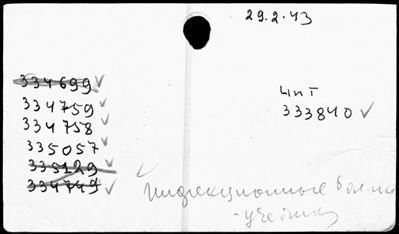 29.2.43
334699 ✓
334759 ✓
334758 ✓
335057 ✓
335129 ✓
334749 ✓
чит
333840 ✓
✓ Инфекционные бол-ни
- учебник